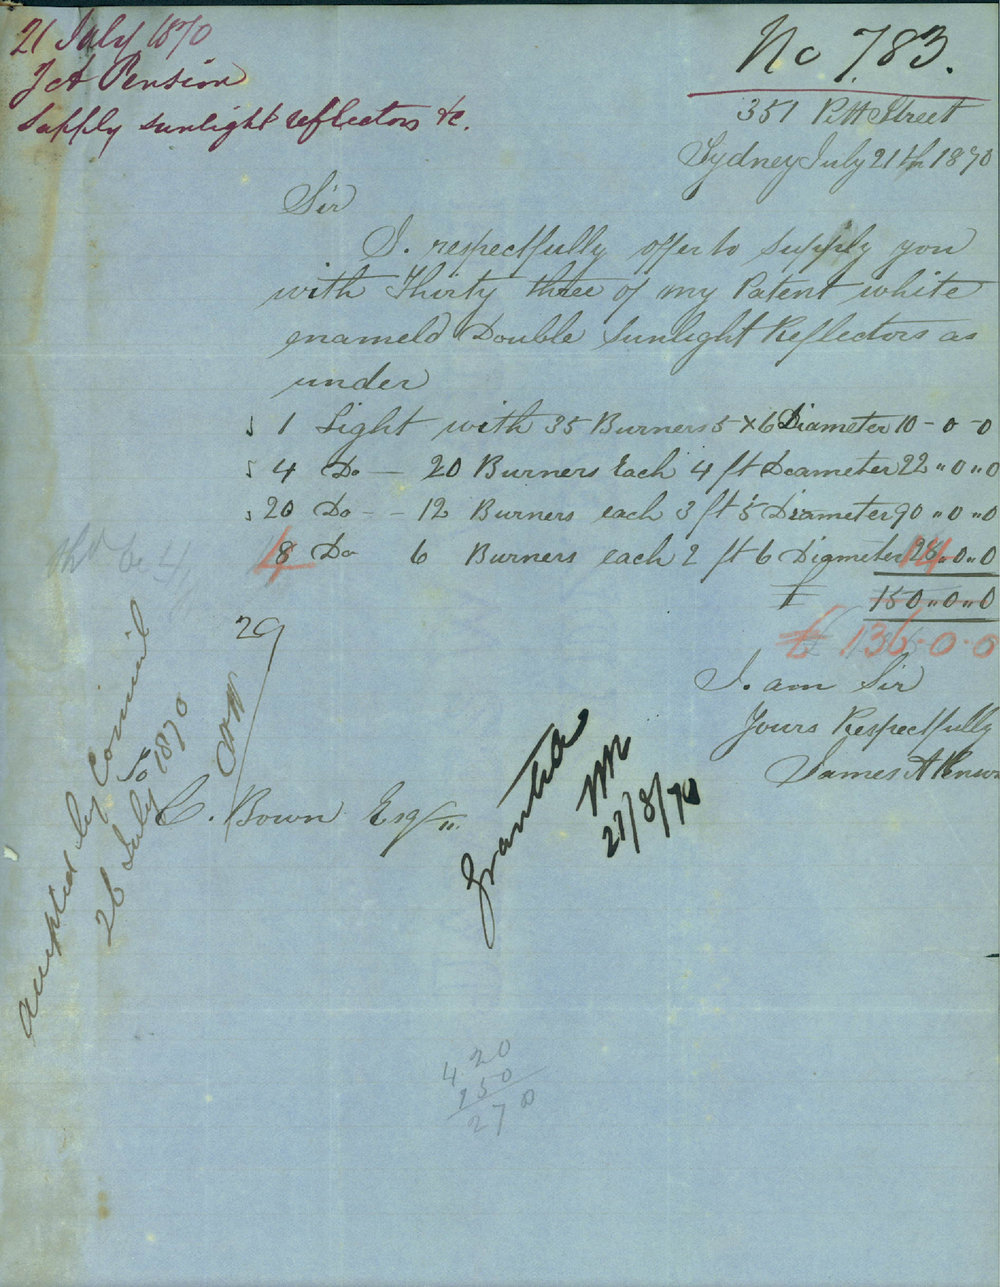 21 July 1870
supply sunlight reflectors &c.
No 783.
351 Pitt Street
Sydney July 21th 1870
Sir
I. respectfully offer to supply you
with Thirty three of my Patent white
enameld Double Sunlight Reflectors as
under
1 Light with 35 Burners 5 x 6 Diameter 10 - 0 - 0
4 Do — 20 Burners Each 4 ft Diameter 22 " 0 " 0
20 Do - - 12 Burners each 3 ft 5 Diameter 90 " 0 " 0
4 8 Do 6 Burners each 2 ft 6 Diameter 28 " 0 " 0 14
£ 150 " 0 " 0
29
£ 136 - 0 - 0
I. am Sir
Yours Respectfully
James
C. Bown Esq
accepted by Council
26 July 1870
Granted
27/8/70
420
150
270